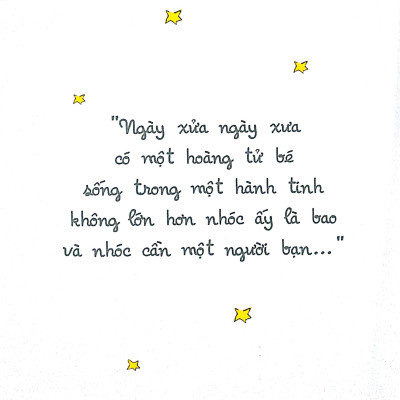 "Ngày xửa ngày xưa
có một hoàng tử bé
sống trong một hành tinh
không lớn hơn nhóc ấy là bao
và nhóc cần một người bạn..."